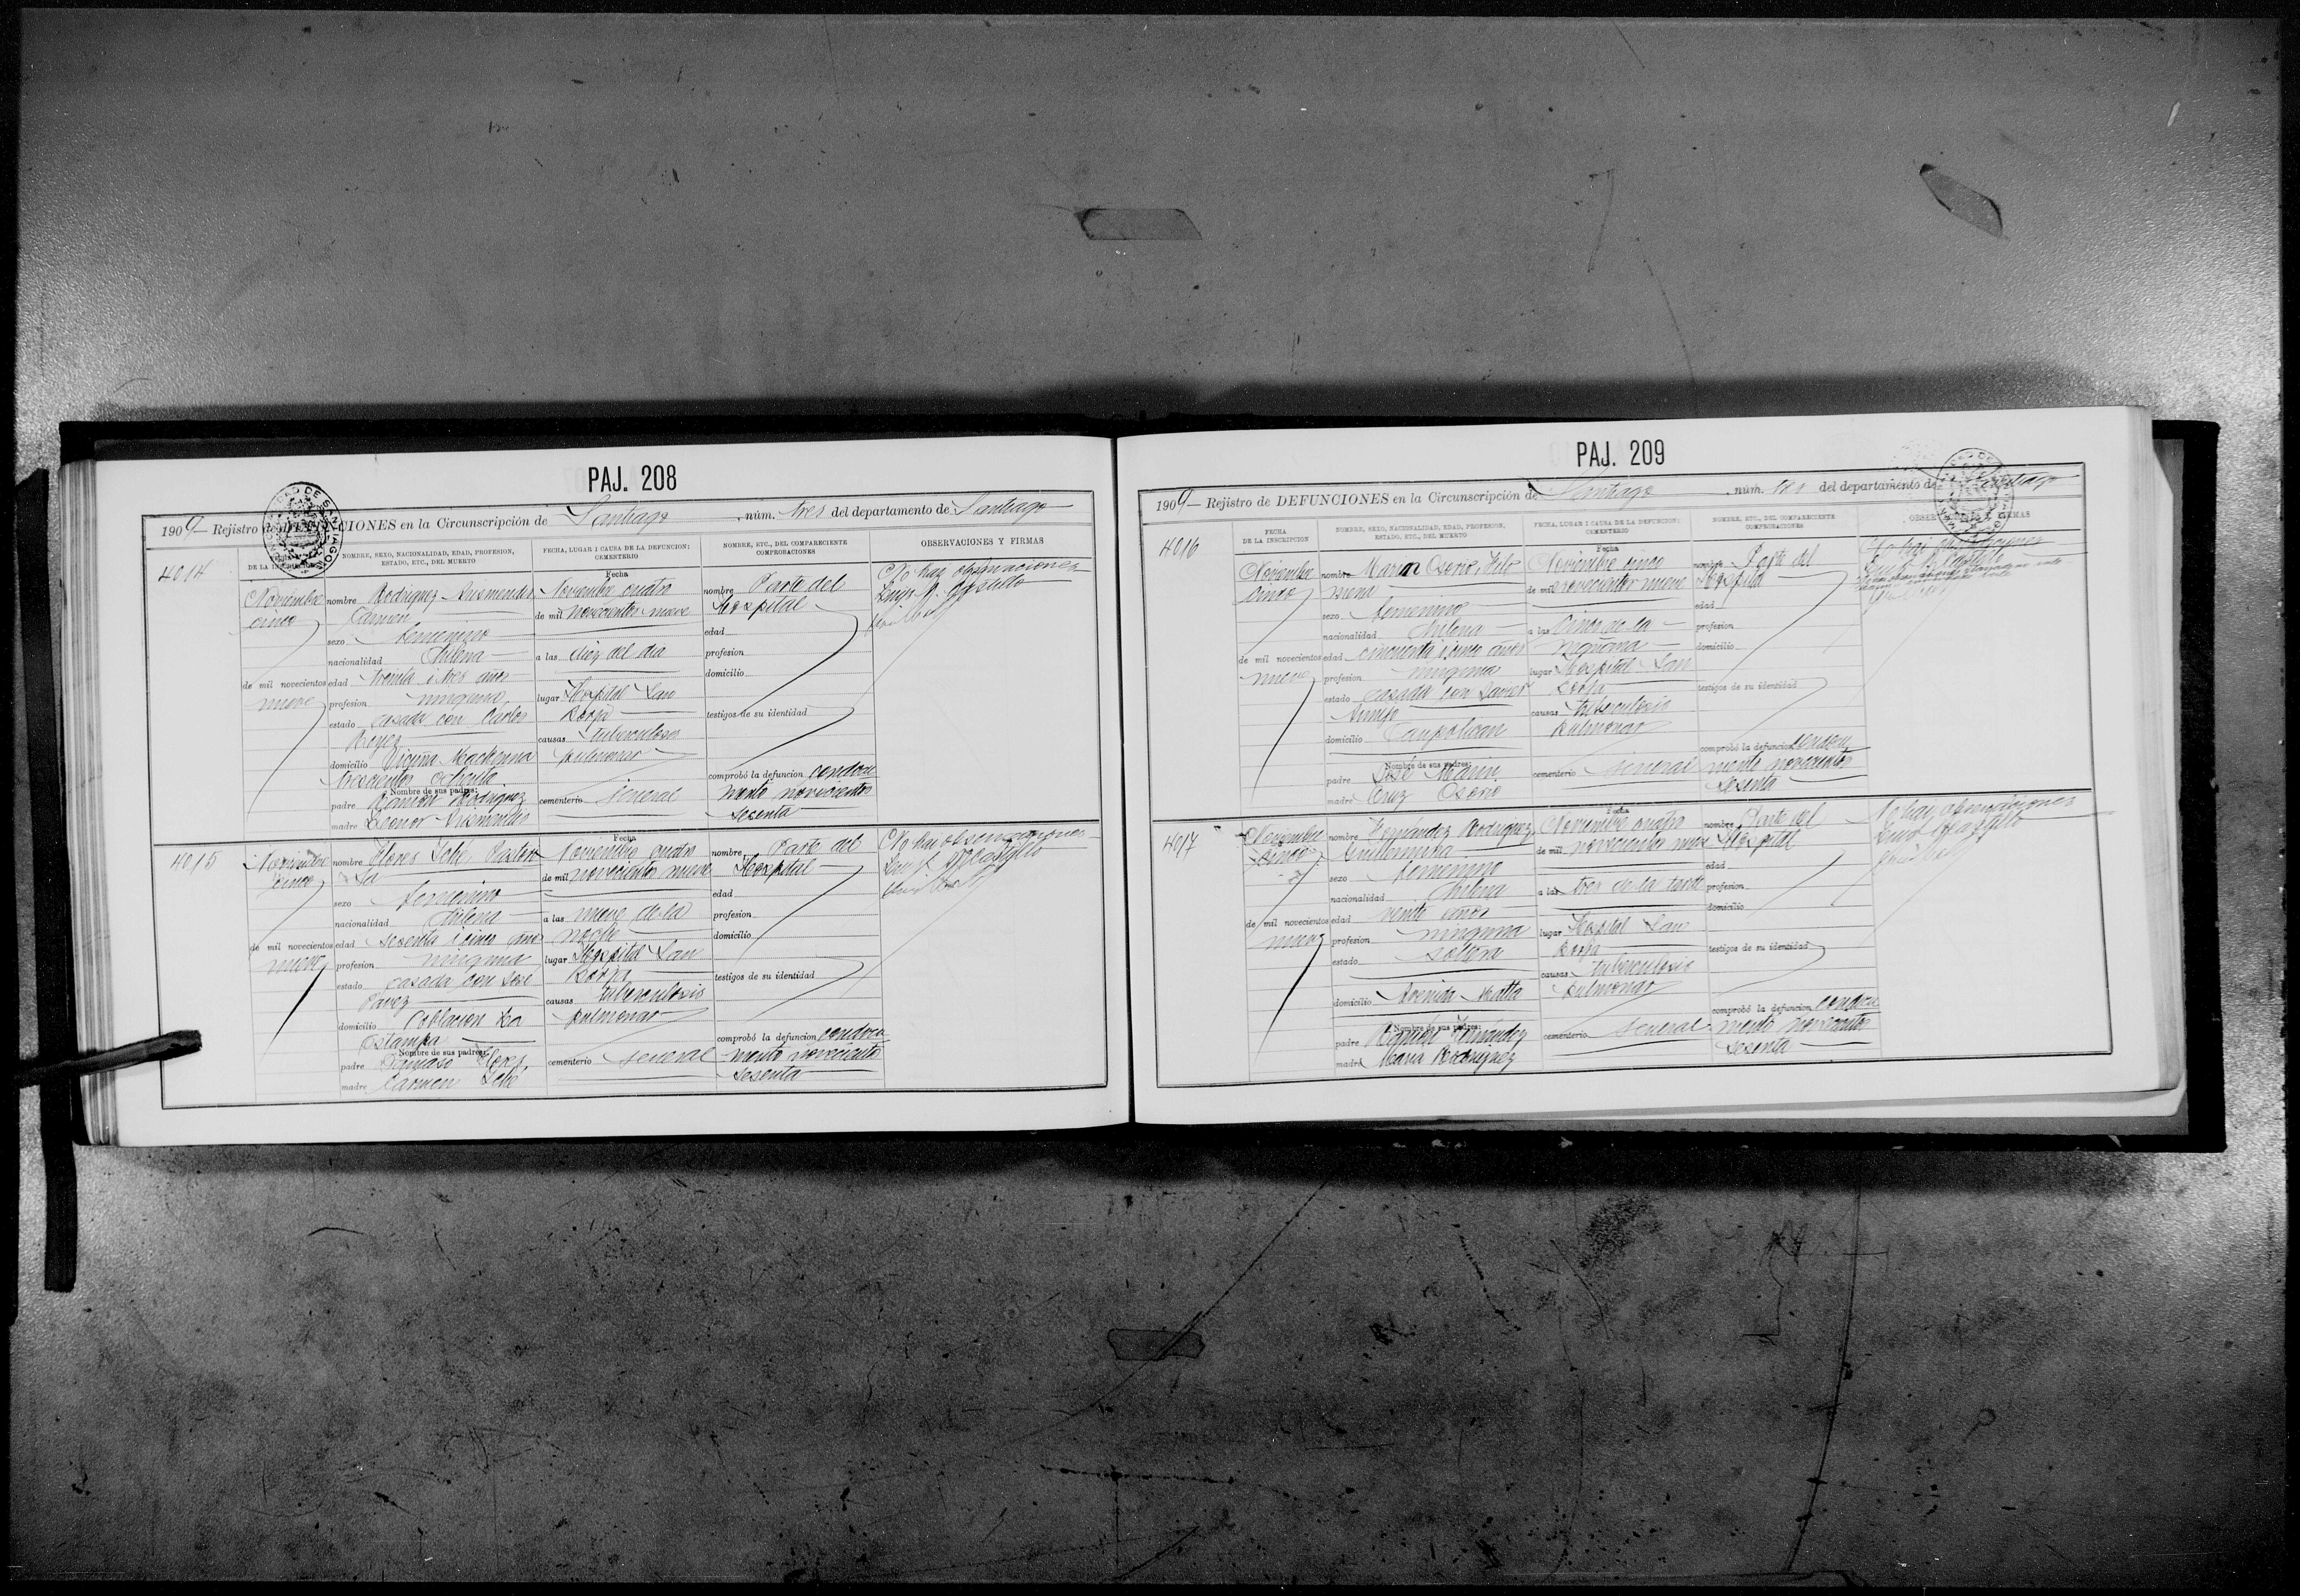 PAJ. 208
1909 — Rejistro de DEFUNCIONES en la Circunscripción de Santiago, núm. tres del departamento de Santiago
DE LA INSCRIPCION
NOMBRE, SEXO, NACIONALIDAD, EDAD, PROFESION, ESTADO, ETC., DEL MUERTO
FECHA, LUGAR I CAUSA DE LA DEFUNCION: CEMENTERIO
NOMBRE, ETC., DEL COMPARECIENTE COMPROBACIONES
OBSERVACIONES Y FIRMAS
4014
Noviembre
cinco
de mil novecientos
nueve
nombre Rodriguez Arismendi
Carmen
sexo femenino
nacionalidad chilena
edad treinta i tres años
profesion ninguna
estado casada con Carlos
Reyes
domicilio Vicuña Mackenna
trescientos ochenta
Nombre de sus padres:
padre Ramon Rodriguez
madre Leonor Arismendi
Fecha
Noviembre cuatro
de mil novecientos nueve
a las diez del dia
lugar Hospital San
Borja
causas tuberculosis
pulmonar
cementerio Jeneral
nombre Parte del
Hospital
edad
profesion
domicilio
testigos de su identidad
comprobó la defuncion
mento novecientos
sesenta
No hai observaciones
4015
Noviembre
cinco
de mil novecientos
nueve
nombre Flores Soto Pastori
sa
sexo femenino
nacionalidad chilena
edad sesenta i cinco años
profesion ninguna
estado casada con José
Pavez
domicilio Poblacion La
Estampa
Nombre de sus padres:
padre Damaso Flores
madre Carmen Soto
Fecha
Noviembre cuatro
de mil novecientos nueve
a las nueve de la
noche
lugar Hospital San
Borja
causas tuberculosis
pulmonar
cementerio Jeneral
nombre Parte del
Hospital
edad
profesion
domicilio
testigos de su identidad
comprobó la defuncion
mento novecientos
sesenta
No hai observaciones
PAJ. 209
1909 — Rejistro de DEFUNCIONES en la Circunscripción de Santiago, núm. tres del departamento de Santiago
FECHA DE LA INSCRIPCION
NOMBRE, SEXO, NACIONALIDAD, EDAD, PROFESION, ESTADO, ETC., DEL MUERTO
FECHA, LUGAR I CAUSA DE LA DEFUNCION: CEMENTERIO
NOMBRE, ETC., DEL COMPARECIENTE COMPROBACIONES
4016
Noviembre
cinco
de mil novecientos
nueve
nombre Marin Osorio, Filo
mena
sexo femenino
nacionalidad chilena
edad cincuenta i cinco años
profesion ninguna
estado casada con Javier
domicilio Caupolican
Nombre de sus padres:
padre José Marin
madre Cruz Osorio
Fecha
Noviembre cinco
de mil novecientos nueve
a las cinco de la
mañana
lugar Hospital San
Borja
causas tuberculosis
pulmonar
cementerio Jeneral
nombre Parte del
Hospital
edad
profesion
domicilio
testigos de su identidad
comprobó la defuncion
mento novecientos
sesenta
No hai observaciones
4017
Noviembre
cinco
de mil novecientos
nueve
nombre Fernández Rodriguez,
Guillermina
sexo femenino
nacionalidad chilena
edad veinte años
profesion ninguna
estado soltera
domicilio Avenida Matta
Nombre de sus padres:
padre Fernández
madre Maria Rodriguez
Fecha
Noviembre cuatro
de mil novecientos nueve
a las tres de la tarde
lugar Hospital San
Borja
causas tuberculosis
pulmonar
cementerio Jeneral
nombre Parte del
Hospital
edad
profesion
domicilio
testigos de su identidad
comprobó la defuncion
mento novecientos
sesenta
No hai observaciones